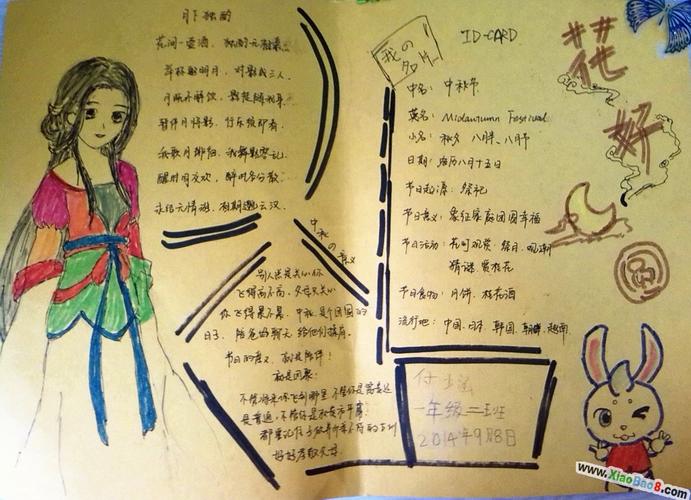 月下独酌
花间一壶酒，独酌无相亲。
举杯邀明月，对影成三人。
月既不解饮，影徒随我身。
暂伴月将影，行乐须及春。
我歌月徘徊，我舞影零乱。
醒时同交欢，醉时各分散。
永结无情游，相期邈云汉。
中秋の意义
别人送是关心你
飞得高不高，父母只关心
你飞得累不累。中秋是个团圆的
日子，陪爸妈聊天
节日的意义
就是团聚！
不管将来你飞到哪里 不管你是
是普通，不管你是
好好孝敬父母
我の名片
ID-CARD
中名：中秋节
英名：Midautumn Festival
小名：秋夕 八月半、八月节
日期：阴历八月十五日
节日起源：祭祀
节日意义：象征家庭团圆幸福
节日活动：花可观赏、祭月、观潮
猜谜、赏桂花
节日食物：月饼、桂花酒
流行地：中国、日本、韩国、朝鲜、越南
付瑶
一年级二班
2014年9月8日
花好月圆
www.XiaoBao8.com